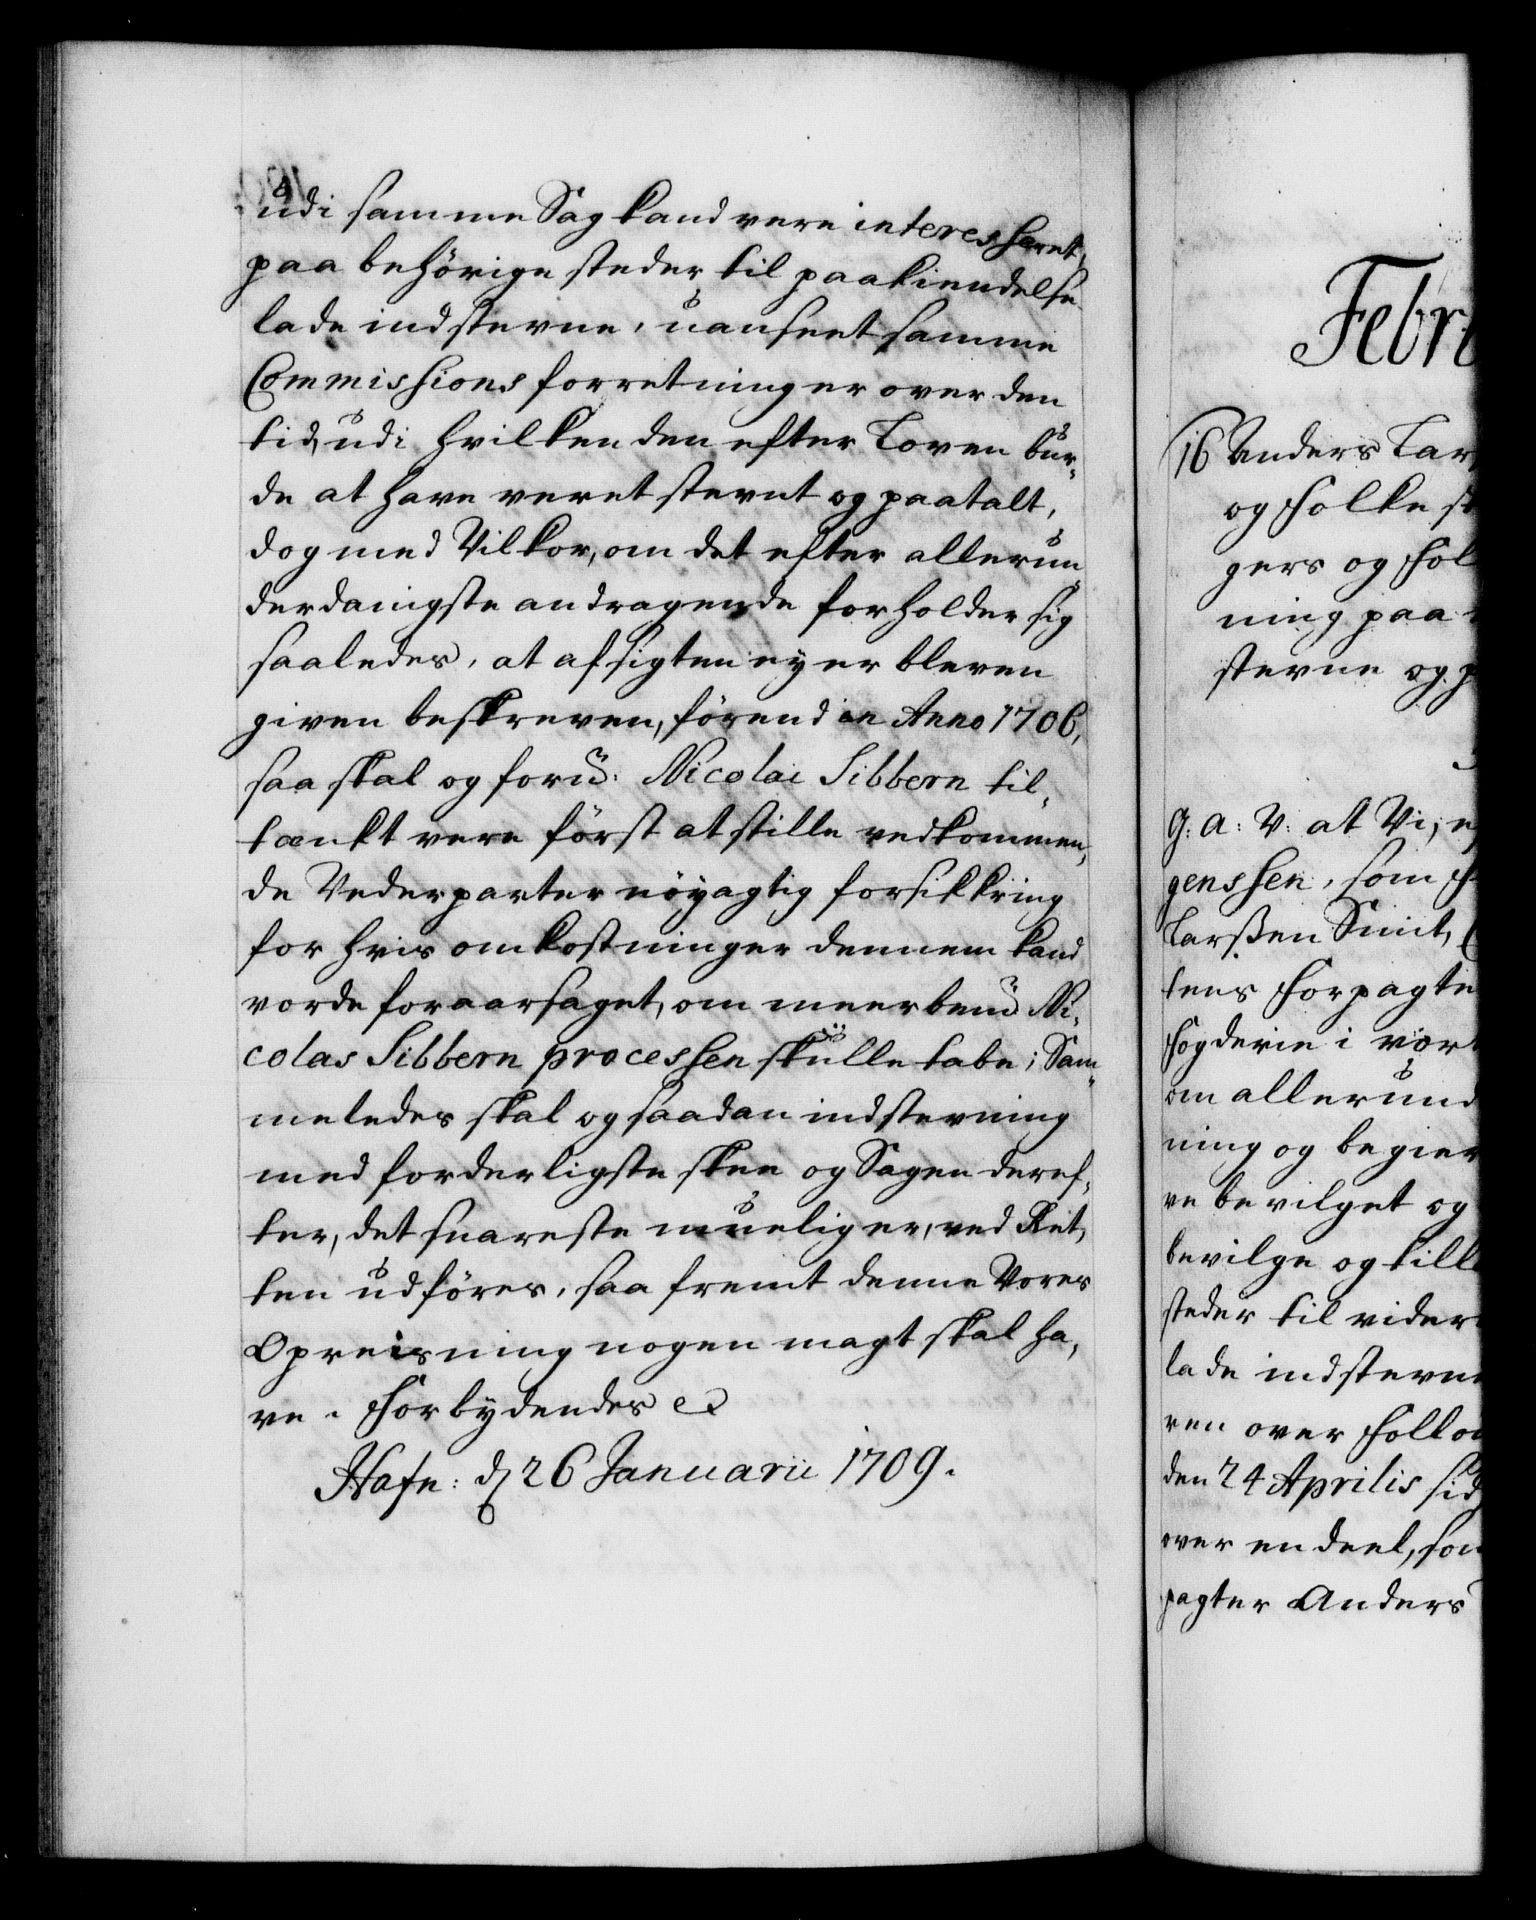 udi samme Sag kand vere interesseret,
paa behörige steder til paakiendelse
lade indstevne, uanseet samme
Commissions forretning er over den
tid, udi hvilken den efter Loven bur-
de at have veret stevnt og paatalt,
dog med Vilkor, om det efter allerun-
derdanigste andragende forholder sig
saaledes, at afsigten ey er bleven
given beskreven, förend in Anno 1706,
saa skal og foru: Nicolai Sibbern til-
tænkt vere först at stille vedkommen-
de Vederparter nöyagtig forsikkring
for hvis omkostninger dennem kand
vorde foraarsaget, om meerbem: Ni-
colas Sibbern processen skulle tabe; Sam-
meledes skal og saadan indstevning
med forderligste skee og Sagen deref-
ter, det snareste mueligt er, ved Ret-
ten udföres, saa fremt denne Vores
Opreisning nogen magt skal ha-
ve. Forbydendes
Hafn: d. 26 Januarii 1709.
Febr
16 Anders Lar
og Folke st
gers og Fol
ning paa
stevne og p
G: A: V: at Vi, e
genssen, som
Larssen Smit,
tens Forpagte
Fogderie i vort
om allerund
ning og begier
ve bevilget og
bevilge og till
steder til vider
lade indstevne
ven over Follo
den 24 Aprilis sid
over en deel, som
pagter Anders